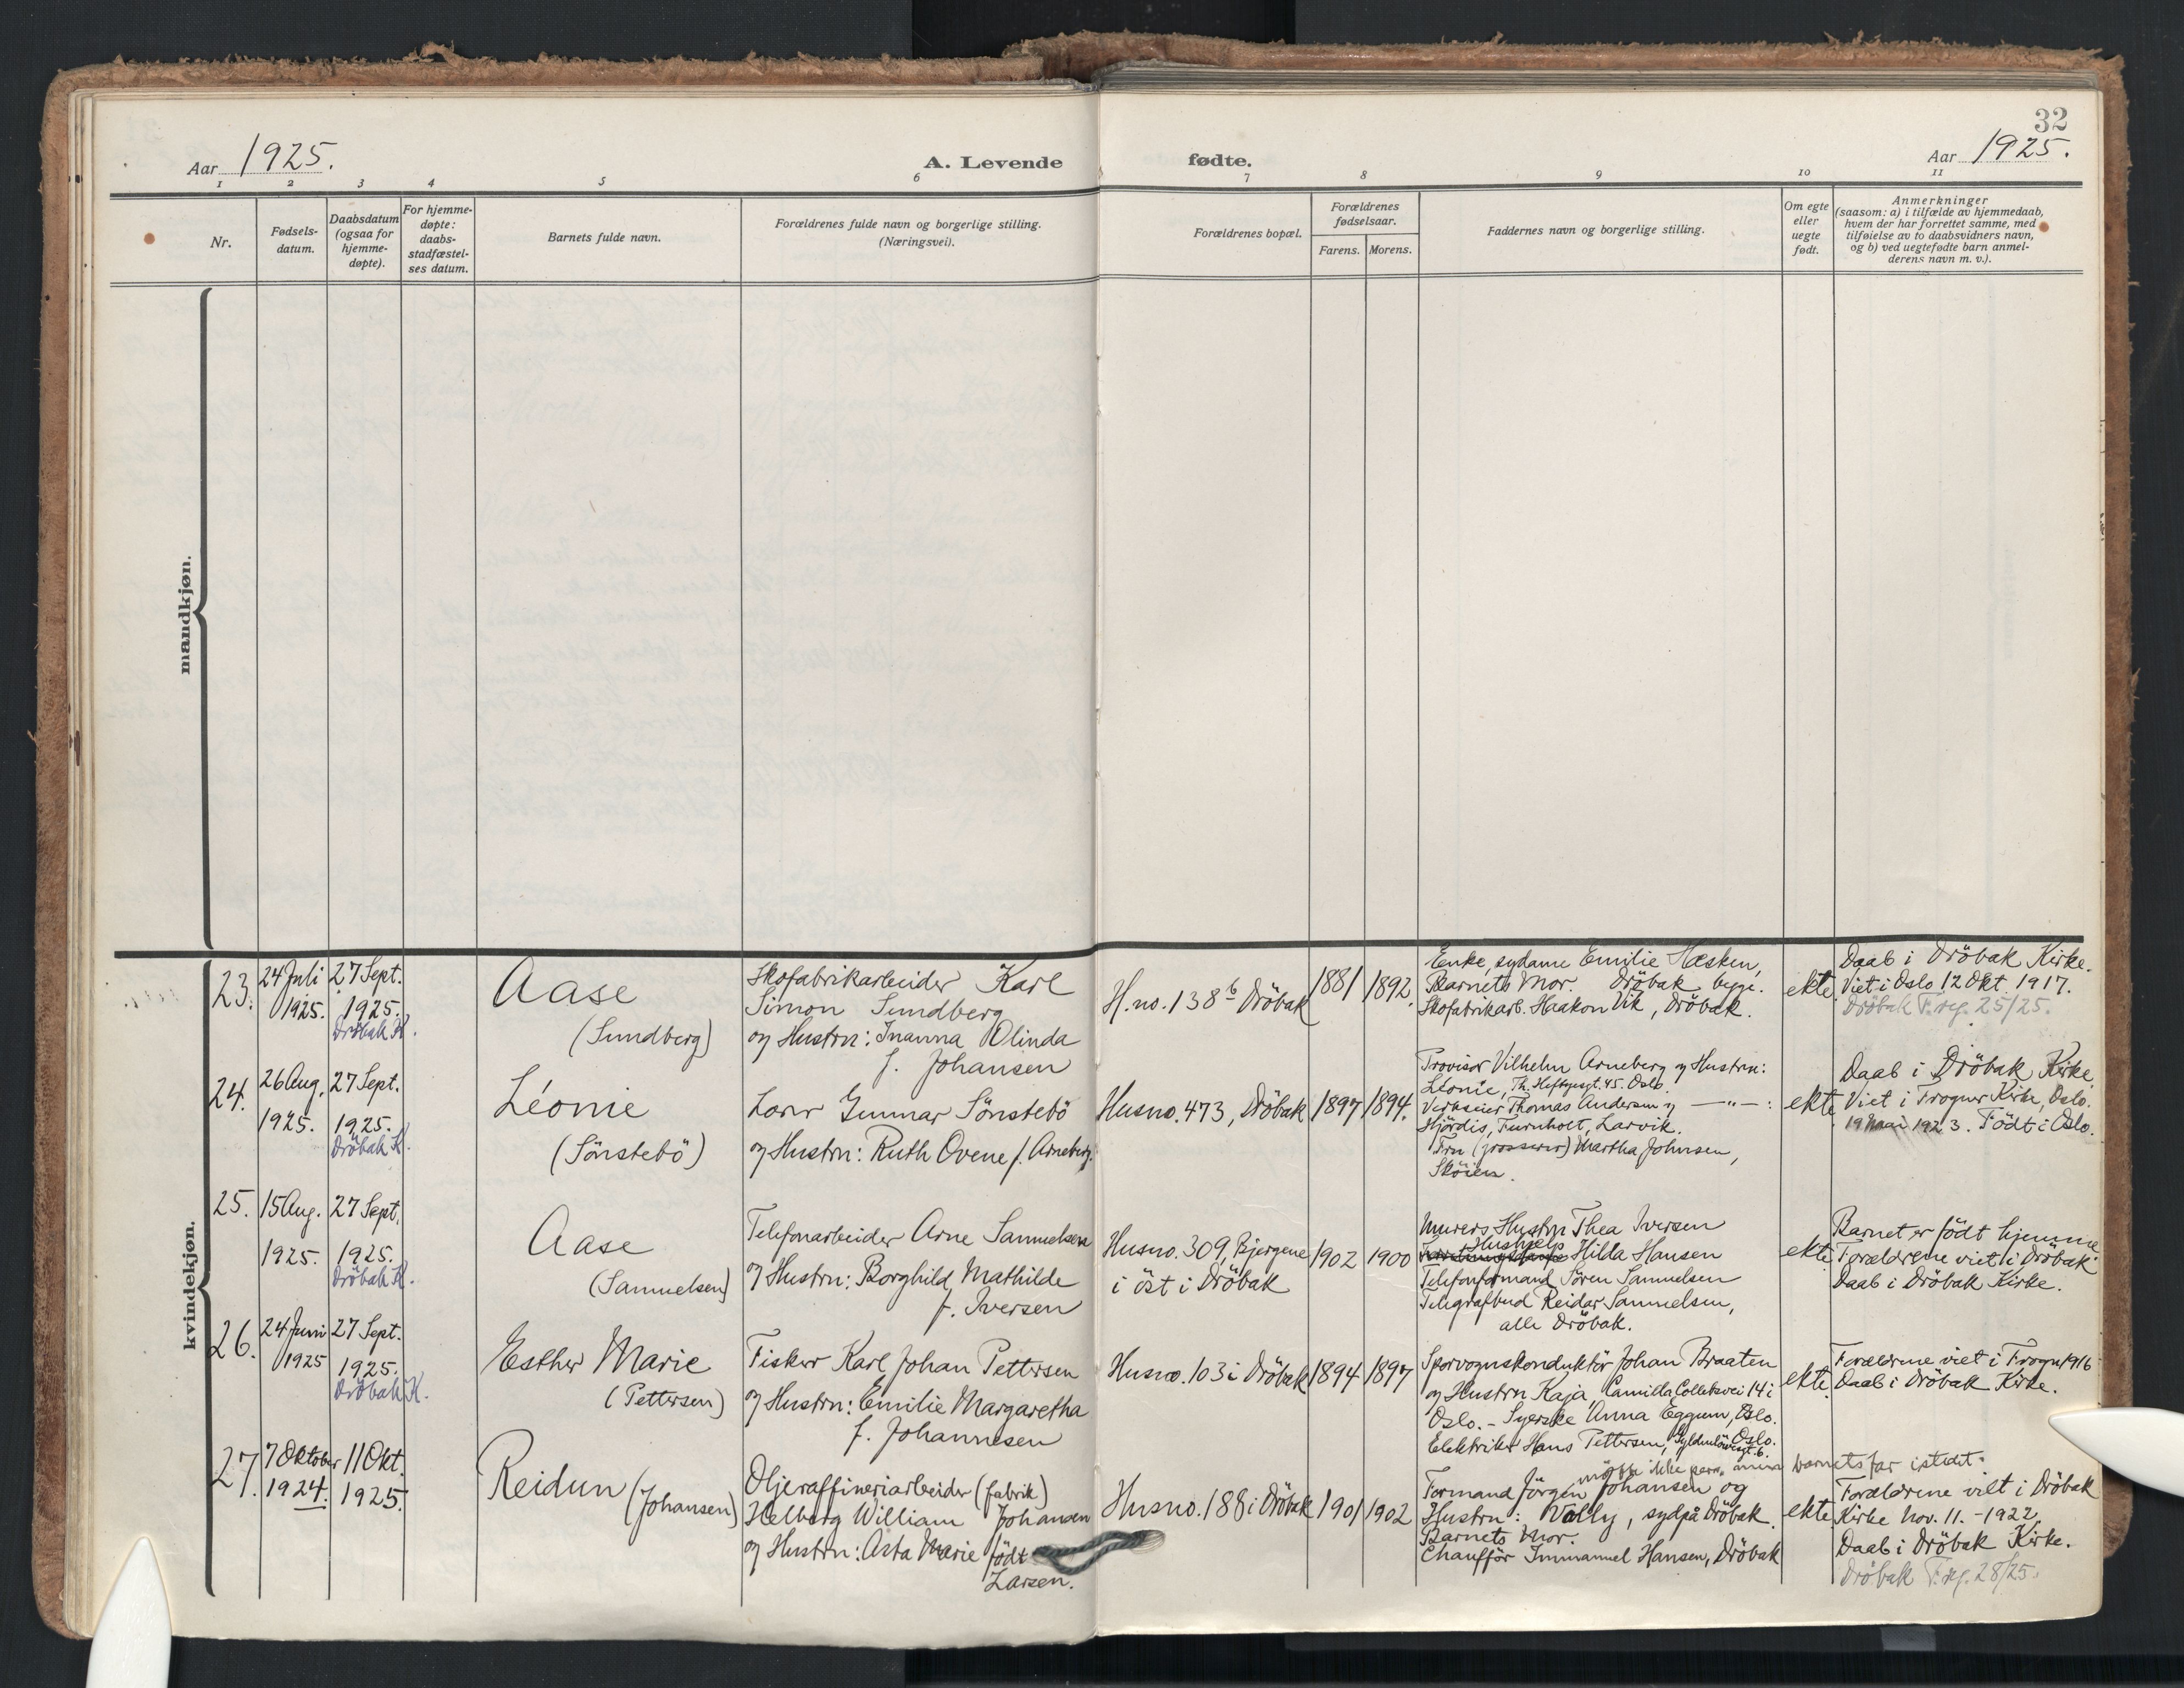 32
Aar 1925.
A. Levende
fødte.
Aar 1925.
1 2 3 4 5 6 7 8 9 10 11
Nr.
Fødsels-
datum.
Daabsdatum
(ogsaa for
hjemme-
døpte).
For hjemme-
døpte:
daabs-
stadfæstel-
ses datum.
Barnets fulde navn.
Forældrenes fulde navn og borgerlige stilling.
(Næringsvei).
Forældrenes bopæl.
Forældrenes
fødselsaar.
Farens. Morens.
Faddernes navn og borgerlige stilling.
Om egte
eller
uegte
født.
Anmerkninger
(saasom: a) i tilfælde av hjemmedaab,
hvem der har forrettet samme, med
tilføielse av to daabsvidners navn,
og b) ved uegtefødte barn anmel-
derens navn m. v.).
mandkjøn.
kvindekjøn.
23.
24 Juli
1925.
27 Sept.
1925.
Dröbak K.
Aase
(Sundberg)
Skofabrikarbeider Karl
Simon Sundberg
og Hustru: Inanna Olinda
f. Johansen
H.no. 138 b Dröbak
1881
1892.
Enke, sydame Emilie Hæsken,
Barnets Mor. Dröbak begge.
Skofabrikarb. Haakon Vik, Dröbak.
ekte.
Daab i Dröbak Kirke.
Viet i Oslo 12 Okt. 1917.
Dröbak F.reg. 25/25.
24.
26 Aug.
1925.
27 Sept.
1925.
Dröbak K.
Léonie
(Sönstebö)
Lærer Gunnar Sönstebö
og Hustru: Ruth Ovene f. Arneberg.
Husno. 473, Dröbak
1897
1894.
Provisor Vilhelm Arneberg og Hustru:
Léonie, Th. Heftyesgt. 45. Oslo.
Verkseier Thomas Andersen og —"— :
Hjördis, Furuholt, Larvik.
Fru (grosserer) Martha Johnsen,
Sköien.
ekte
Daab i Dröbak Kirke.
Viet i Frogner Kirke, Oslo.
19 Mai 1923. Födt i Oslo.
25.
15 Aug.
1925.
27 Sept.
1925.
Dröbak K.
Aase
(Samuelsen)
Telefonarbeider Arne Samuelsen
og Hustru: Borghild Mathilde
f. Iversen
Husno. 309, Bjergene
i öst i Dröbak
1902
1900
Murers Hustru Thea Iversen
Hushjelp
Hilda Hansen
Telefonformand Sören Samuelsen
Telegrafbud Reidar Samuelsen,
alle Dröbak.
ekte
Barnet er födt hjemme.
Forældrene viet i Dröbak
Daab i Dröbak Kirke.
26.
24 Juni
1925
27 Sept.
1925.
Dröbak K.
Esther Marie
(Pettersen)
Fisker Karl Johan Pettersen
og Hustru: Emilie Margaretha
f. Johannesen
Husno. 103 i Dröbak
1894
1897
Sporvognskonduktör Johan Braaten
og Hustru Kaja, Camilla Colletsvei 14 i
Oslo. - Syerske Anna Eggum, Oslo.
Elektriker Hans Pettersen, Gyldenlövesgt. 6. Oslo.
ekte.
Forældrene viet i Frogn 1916
Daab i Dröbak Kirke.
27.
7 Oktober
1924.
11 Okt.
1925.
Reidun (Johansen)
Oljeraffineriarbeider (fabrik)
Helberg William Johansen
og Hustru: Asta Marie födt
Larsen.
Husno. 188 i Dröbak
1901
1902
mötte ikke barnets far istedet.
Formand Jörgen Johansen og
Hustru: Valby, sydpå Dröbak.
Barnets Mor.
Chaufför Immanuel Hansen, Dröbak
ekte
Forældrene viet i Dröbak
Kirke Nov. 11. - 1922.
Daab i Dröbak Kirke.
Dröbak F.reg. 28/25.